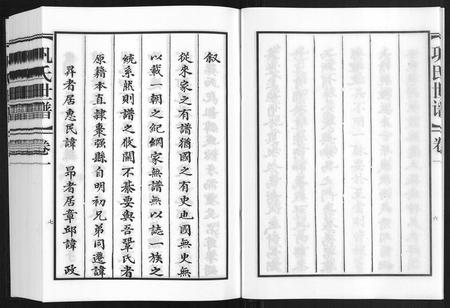 巩氏世谱
卷一
六
叙
從來家之有譜猶國之有史也國無史無
以載一朝之紀綱家無譜無以誌一族之
統系然則譜之攸關不綦要與吾鞏氏者
原籍本直隸棗强縣自明初兄弟同遷諱
昇者居惠民諱 昴者居章邱諱 政
巩氏世谱
卷一
七